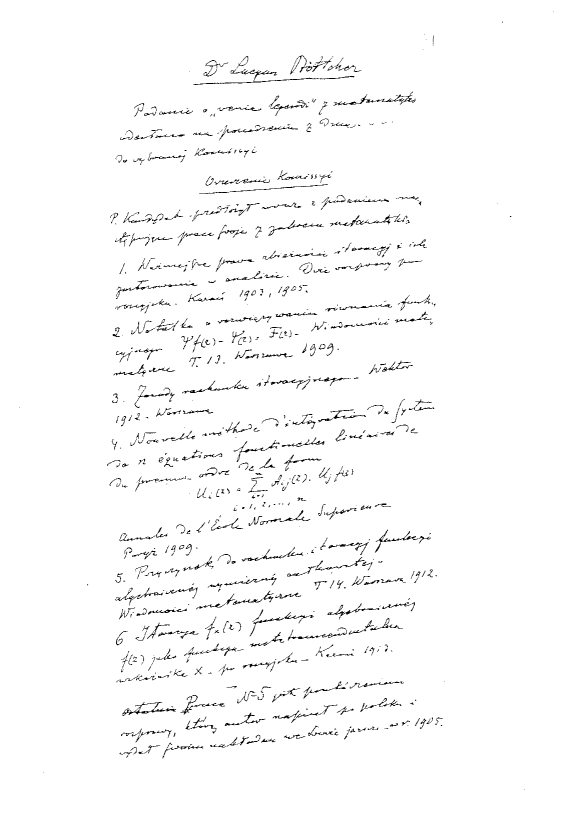 1
Dr Lucyan Böttcher
Podanie o „venia legendi" z matematyki
odesłano na posiedzeniu z dnia - - -
do wybranej Komissyi
Orzeczenie Komissyi
P. Kandydat przedłożył wraz z podaniem na-
stępujące prace swoje z zakresu matematyki
1. Ważniejsze prawa zbieżności iteracyj i ich
zastosowanie w analizie. Dwie rozprawy po
rosyjsku. Kazań 1903, 1905.
2 Notatka o rozwiązywaniu równania funk-
cyjnego Ψf(z) - Ψ(z) = F(z) - Wiadomości mate-
matyczne T. 13. Warszawa 1909.
3. Zasady rachunku iteracyjnego - Wektor
1912 - Warszawa
4. Nouvelle méthode d'intégration du système
de n équations fonctionelles linéaires de
du premier ordre de la form
Ui(z) = Σ Aij(z). Uj f(z)
i = 1, 2, ..., n
Annales de l'École Normale Superieure
Paryż 1909.
5. Przyczynek do rachunku iteracyj funkcyi
algebraicznej wymiernej całkowitej -
Wiadomości matematyczne T 14. Warszawa 1912.
6 Iteracye fx(z) funkcyi algebraicznej
f(z) jako funkcya metatranscendentalna
wskaźnika X - po rosyjsku - Kazań
Praca N-5 jest powtórzeniem
rozprawy, którą autor napisał po polsku i
wydał swoim nakładem we Lwowie w r. 1905.